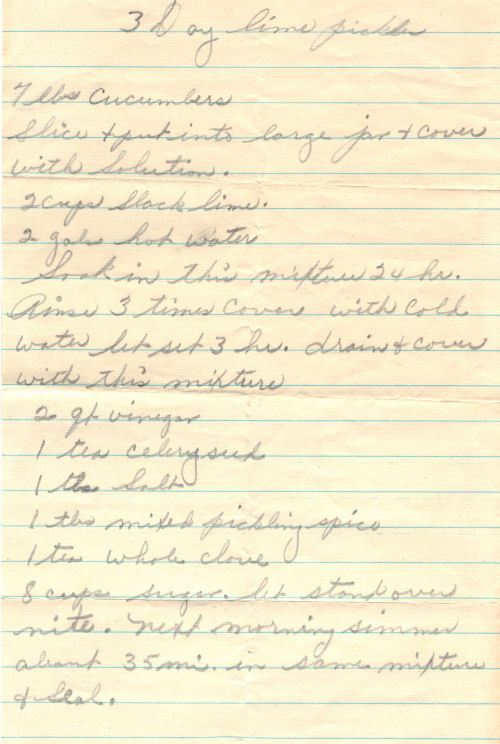 3 Day lime pickle
7 lbs cucumbers
Slice & put into large jar & cover
with Solution.
2 cups Slack lime.
2 gals hot water
Soak in this mixture 24 hr.
Rinse 3 times Cover with Cold
water let set 3 hr. drain & cover
with this mixture
2 qt vinegar
1 tea celery seed
1 tbs Salt
1 tbs mixed pickling spice
1 tea whole clove
8 cups sugar. let stand over
nite. next morning simmer
about 35 mi. in same mixture
& Seal.